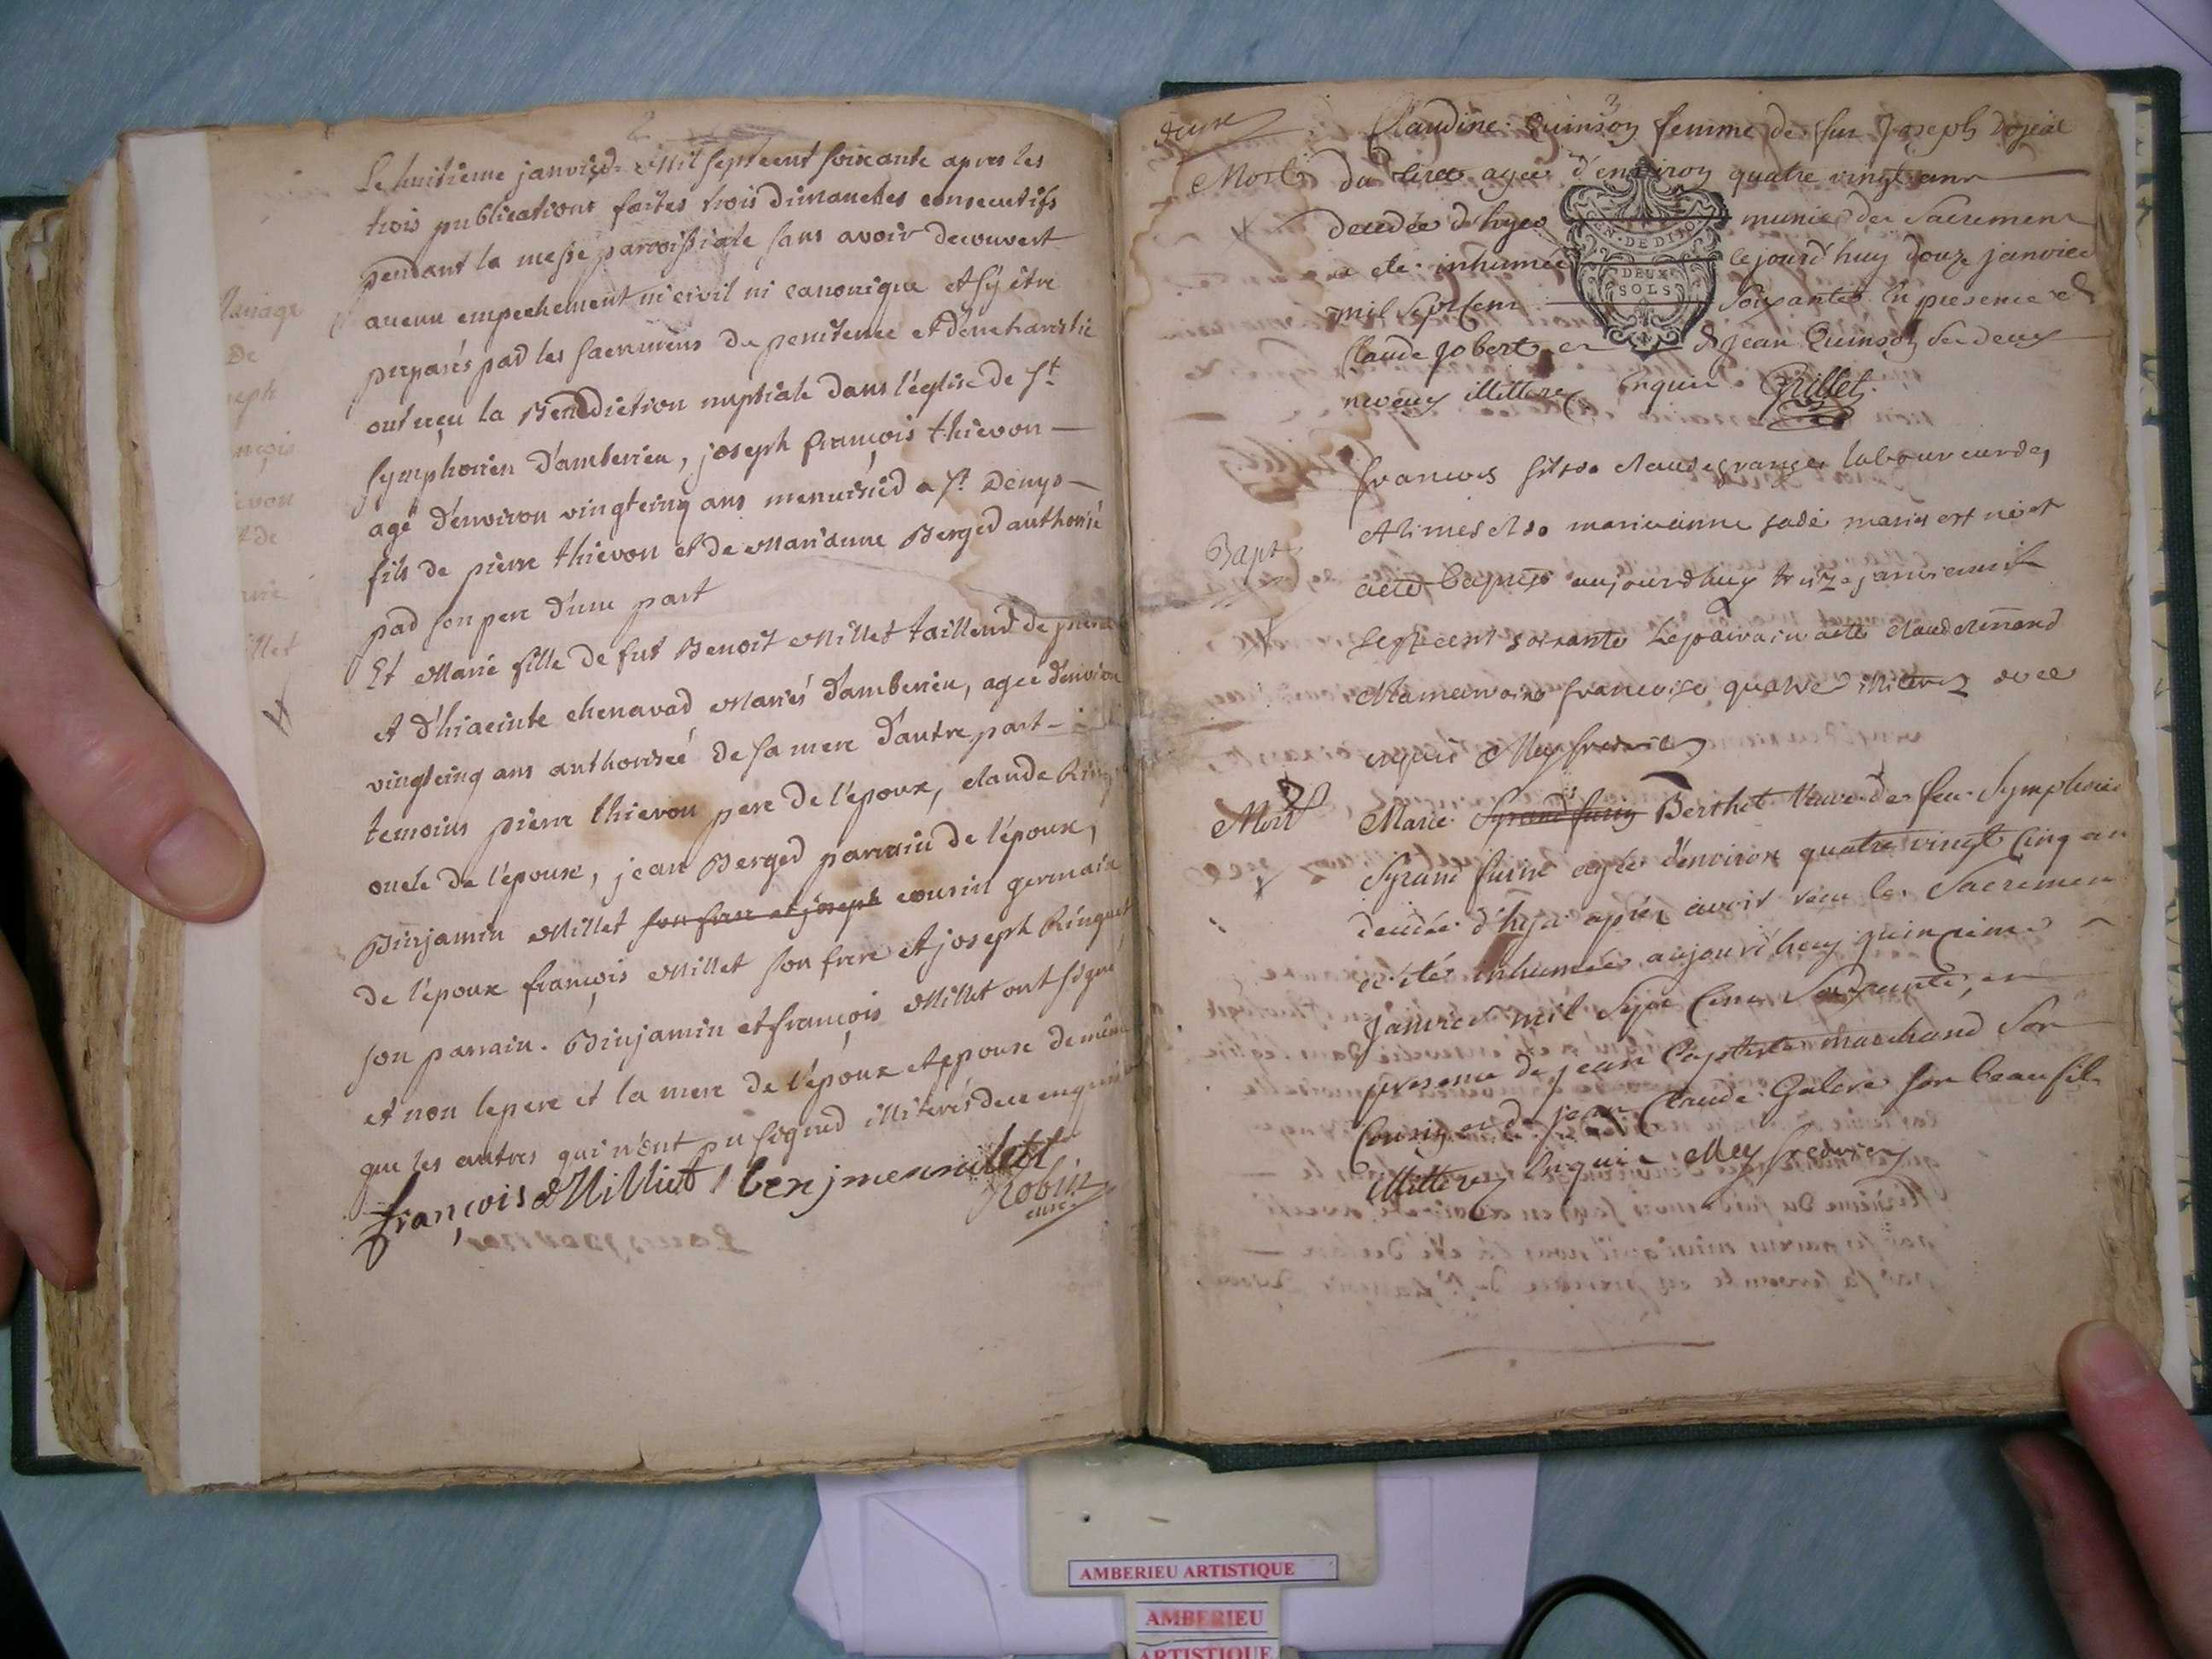 2
Le huitieme janvier Mil septcent soixante apres les
trois publications faites trois dimanches consecutifs
pendant la messe paroissiale sans avoir decouvert
aucun empechement ni civil ni canonique et s'y être
preparés par les sacremens de penitence et d'eucharistie
ont reçu la Benediction nuptiale dans l'église de St
symphorien d'amberieu, joseph françois thievon
agé d'environ vingtcinq ans menuisier a St Denys
fils de pierre thievon et de Marianne Berger authorisé
par son pere d'une part
Et Marie fille de fut Benoit Millet tailleur de
et d'hiacinte chenavad Mariés d'amberieu, agée d'environ
vingtcinq ans authorisée de sa mere d'autre part
temoins pierre thievon pere de l'époux, claude
oncle de l'épouse, jean Berger parrain de l'époux,
Binjamin Millet son frere et joseph cousin germain
de l'épouse françois Millet son frere et joseph Ringuet
son parrain. Binjamin et françois Millet ont signé
et non le pere et la mere de l'époux et épouse de même
que les autres qui n'ont pu signer illiterés de ce enquis
françois Milliet benjmen milet
Robin
curé
Mariage
De
3
Claudine Quinson femme de feu Joseph
Mort
du agée d'environ quatre vingt ans
decedée d'hyer munie des Sacremens
a eté inhumée cejourd'huy douze janvier
mil sept cent soixante En presence de
Claude Jobert et de Jean Quinson ses deux
neveux illitterez Enquis Grillet
EN. DE DIJON
DEUX
SOLS
francois fils de claude granger laboureur des
Alimes et de marieanne mariés est né et
Bapt
aeté baptisé aujourdhuy treize janvier mil
septcent soixante Le parrain aeté claude
et la marraine francoise illiterez avec
enquis Meyfredier
Mort
Marie Syrand furin Berthet Veuve de feu Symphorien
Syrand furin agée d'environ quatre vingt cinq an
decedée d'hyer après avoir recu les Sacremen
a été inhumée aujourd'huy quinzieme
Janvier mil Sept Cent Soixante, en
presence de jean baptiste marchand son
Cousin et de jean Claude son beau fils
illitterez Enquis Meyfredier
AMBERIEU ARTISTIQUE
AMBERIEU
ARTISTIQUE